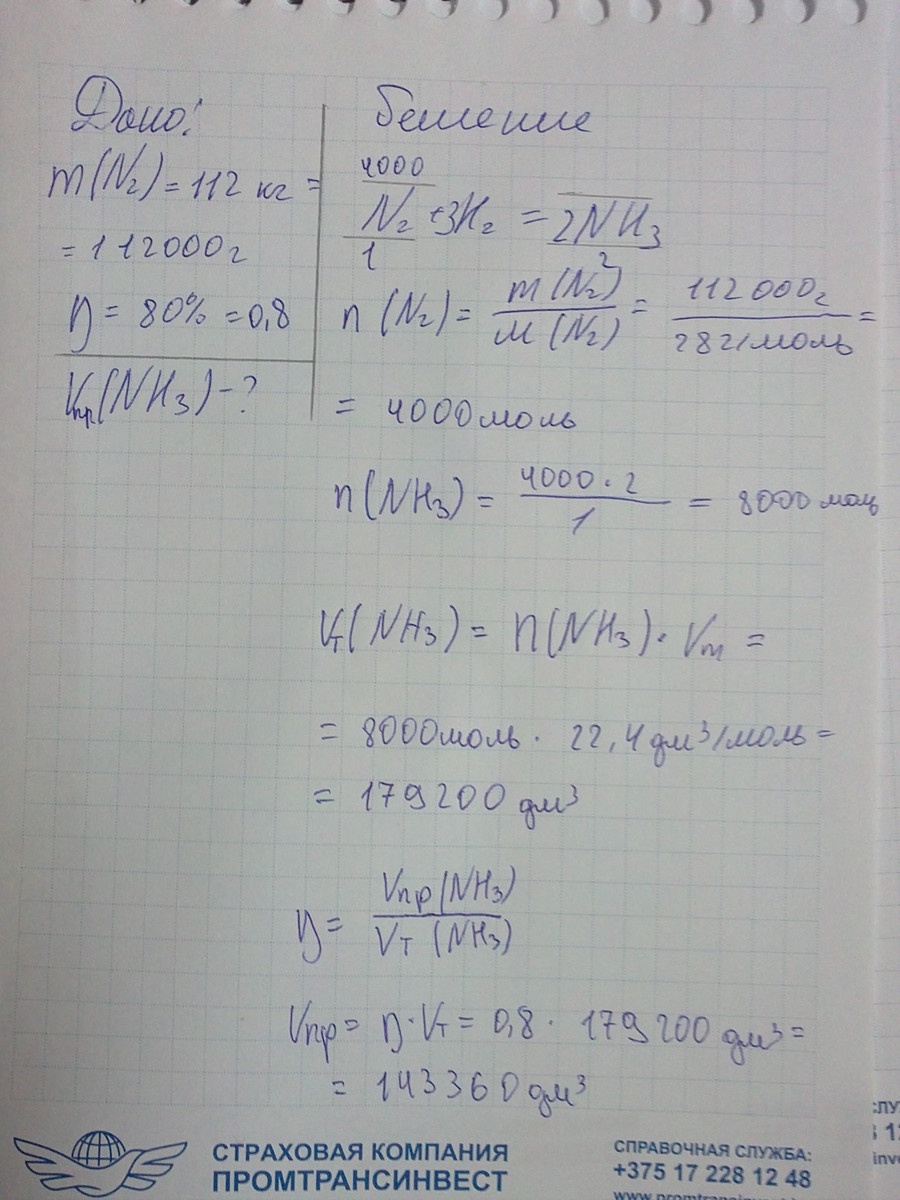 Дано:
m(N₂) = 112 кг =
= 112000 г
η = 80% = 0,8
Vпр(NH₃) - ?
Решение
4000
N₂ + 3H₂ = 2NH₃
1 2
n(N₂) = m(N₂)/M(N₂) = 112000г/28г/моль =
= 4000 моль
n(NH₃) = 4000 · 2/1 = 8000 моль
Vт(NH₃) = n(NH₃) · Vm =
= 8000 моль · 22,4 дм³/моль =
= 179200 дм³
η = Vпр(NH₃)/Vт(NH₃)
Vпр = η · Vт = 0,8 · 179200 дм³ =
= 143360 дм³
СТРАХОВАЯ КОМПАНИЯ
ПРОМТРАНСИНВЕСТ
СПРАВОЧНАЯ СЛУЖБА:
+375 17 228 12 48